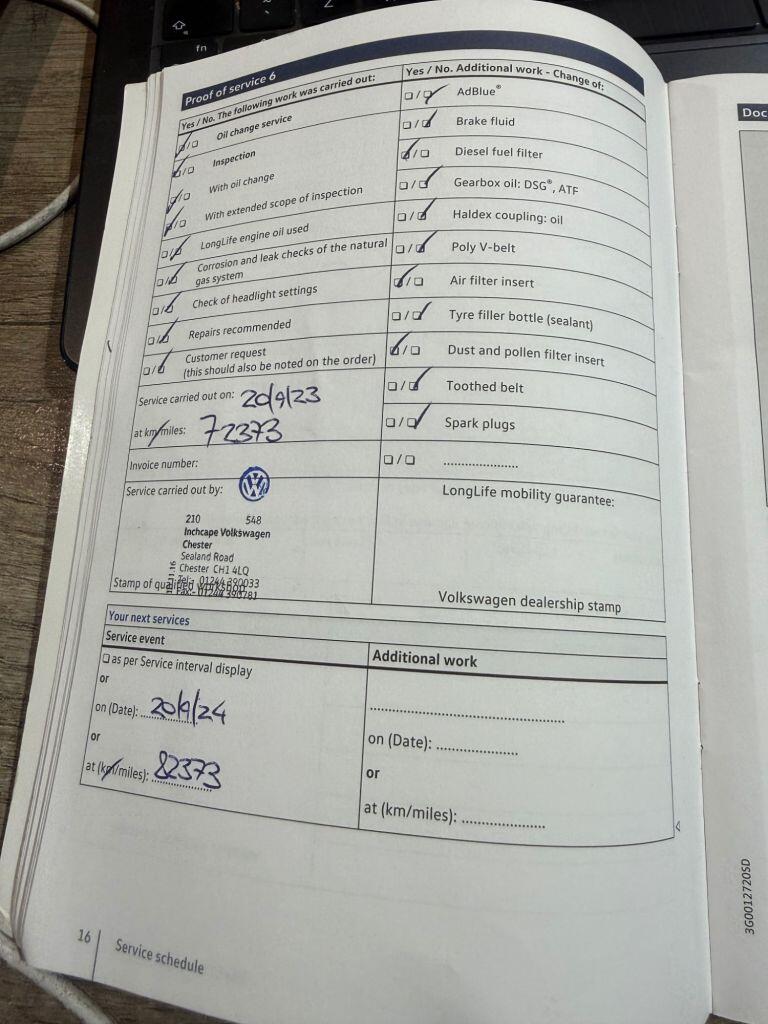 fn
Proof of service 6
Yes / No. The following work was carried out:
Oil change service
Inspection
With oil change
With extended scope of inspection
LongLife engine oil used
Corrosion and leak checks of the natural
gas system
Check of headlight settings
Repairs recommended
Customer request
(this should also be noted on the order)
Service carried out on: 20/9/23
at km/miles: 72373
Invoice number:
Service carried out by:
210 548
Inchcape Volkswagen
Chester
Sealand Road
Chester CH1 4LQ
Tel:- 01244 390033
Fax:- 01244 390781
Stamp of qualified workshop
Yes / No. Additional work - Change of:
AdBlue®
Brake fluid
Diesel fuel filter
Gearbox oil: DSG®, ATF
Haldex coupling: oil
Poly V-belt
Air filter insert
Tyre filler bottle (sealant)
Dust and pollen filter insert
Toothed belt
Spark plugs
....................
LongLife mobility guarantee:
Volkswagen dealership stamp
Your next services
Service event
as per Service interval display
or
on (Date): 20/9/24
or
at (km/miles): 82373
Additional work
on (Date): ....................
or
at (km/miles): ....................
16 Service schedule
Doc
3G0012720SD